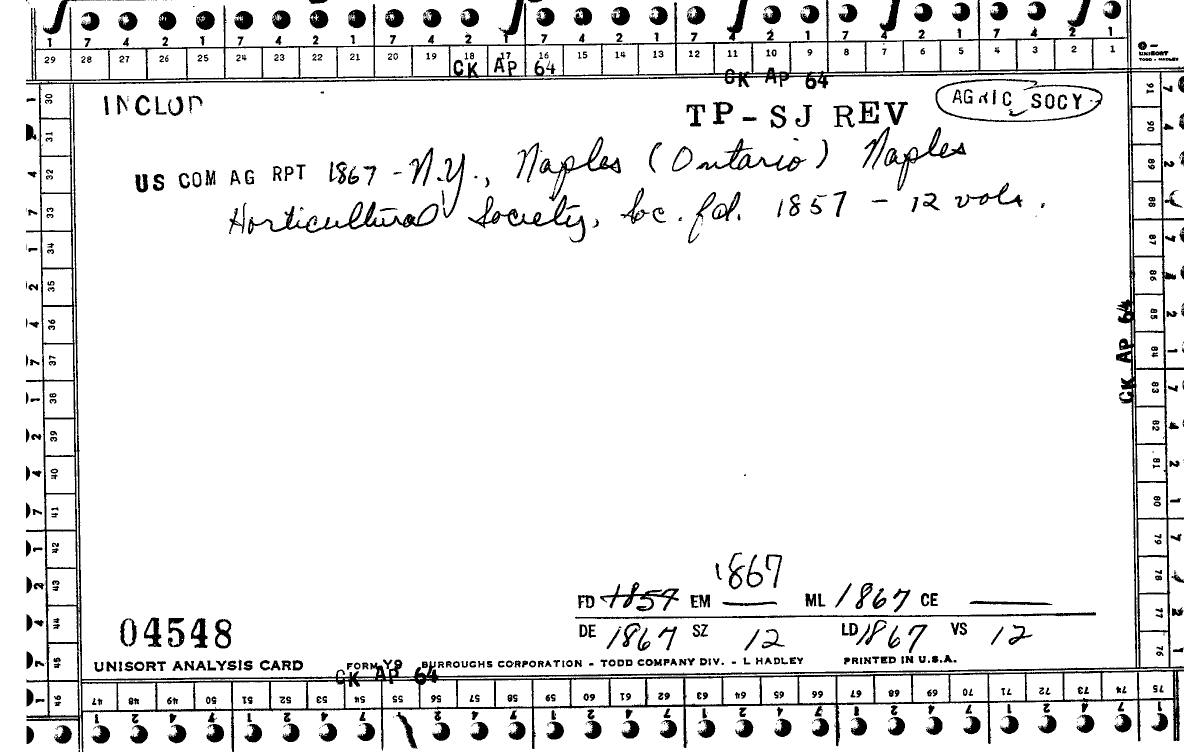 7 4 2 1 7 4 2 1 7 4 2 1 7 4 2 1 7 4 2 1 7 4 2 1 7 4 2 1
29 28 27 26 25 24 23 22 21 20 19 18 17 16 15 14 13 12 11 10 9 8 7 6 5 4 3 2 1
UNISORT
TODD - HADLEY
CK AP 64
CK AP 64
INCLOP
TP-SJ REV
AGRIC SOCY
US COM AG RPT 1867 - N.Y., Naples (Ontario) Naples
Horticultural Society, Soc. fd. 1857 - 12 vols.
30 31 32 33 34 35 36 37 38 39 40 41 42 43 44 45 46
91 90 89 88 87 86 85 84 83 82 81 80 79 78 77 76
CK AP 64
1867
FD 1857 EM ML 1867 CE
04548
DE 1867 SZ 12 LD 1867 VS 12
UNISORT ANALYSIS CARD FORM Y9 BURROUGHS CORPORATION - TODD COMPANY DIV. - L HADLEY PRINTED IN U.S.A.
CK AP 64
47 48 49 50 51 52 53 54 55 56 57 58 59 60 61 62 63 64 65 66 67 68 69 70 71 72 73 74 75